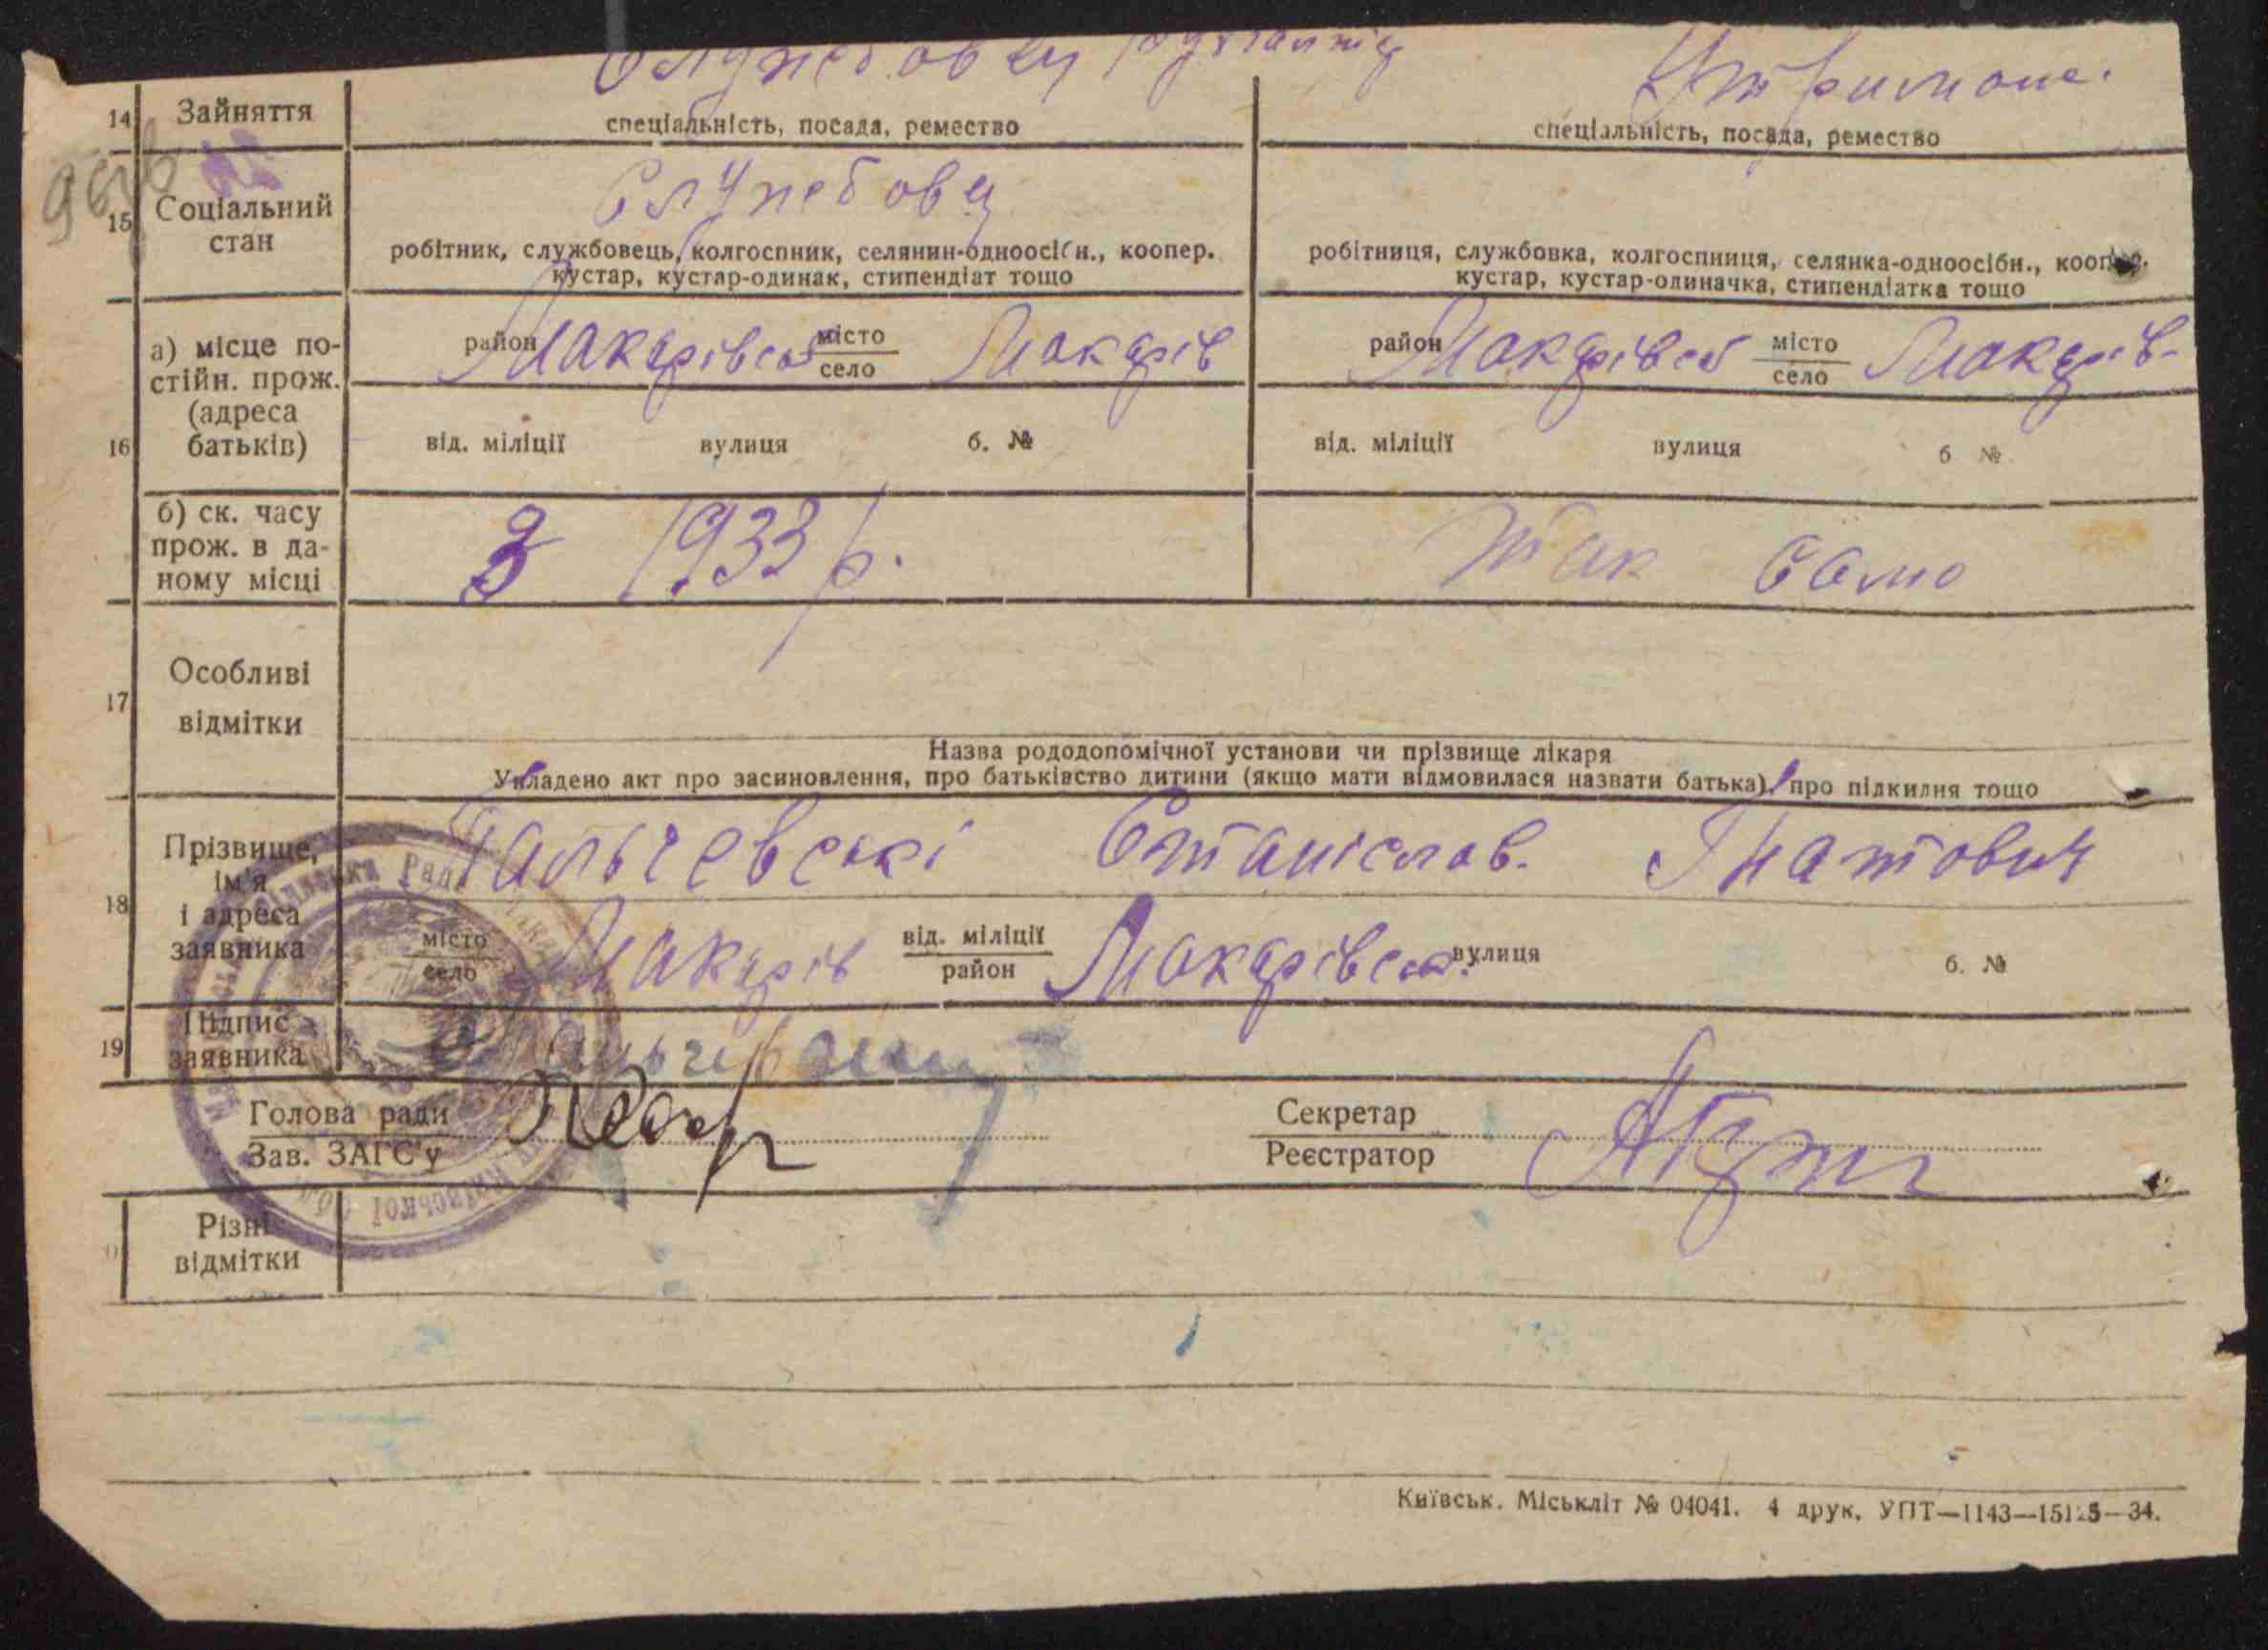 Утримане.
14 Зайняття
спеціальність, посада, ремество
спеціальність, посада, ремество
15 Соціальний стан
Служебовц
робітник, службовець, колгоспник, селянин-одноосібн., коопер.
кустар, кустар-одинак, стипендіат тощо
робітниця, службовка, колгоспниця, селянка-одноосібн., коопер.
кустар, кустар-одиначка, стипендіатка тощо
16
а) місце по-
стійн. прож.
(адреса
батьків)
район Макарівськ місто село Макарів
район Макарівськ місто село Макарів
від. міліції вулиця б. №
від. міліції вулиця б №
б) ск. часу
прож. в да-
ному місці
З 1933 р.
так само
17 Особливі
відмітки
Назва рододопомічної установи чи прізвище лікаря
Укладено акт про засиновлення, про батьківство дитини (якщо мати відмовилася назвати батька), про підкидня тощо
18 Прізвище,
ім'я
і адреса
заявника
Пальчевскі Станіслав. Гнатович
місто село Макарів від. міліції район Макарівськ. вулиця б. №
19 Підпис
заявника
Голова ради
Зав. ЗАГС'у
Секретар
Реєстратор
Різні
відмітки
Київськ. Міськліт № 04041. 4 друк. УПТ—1143—15125—34.